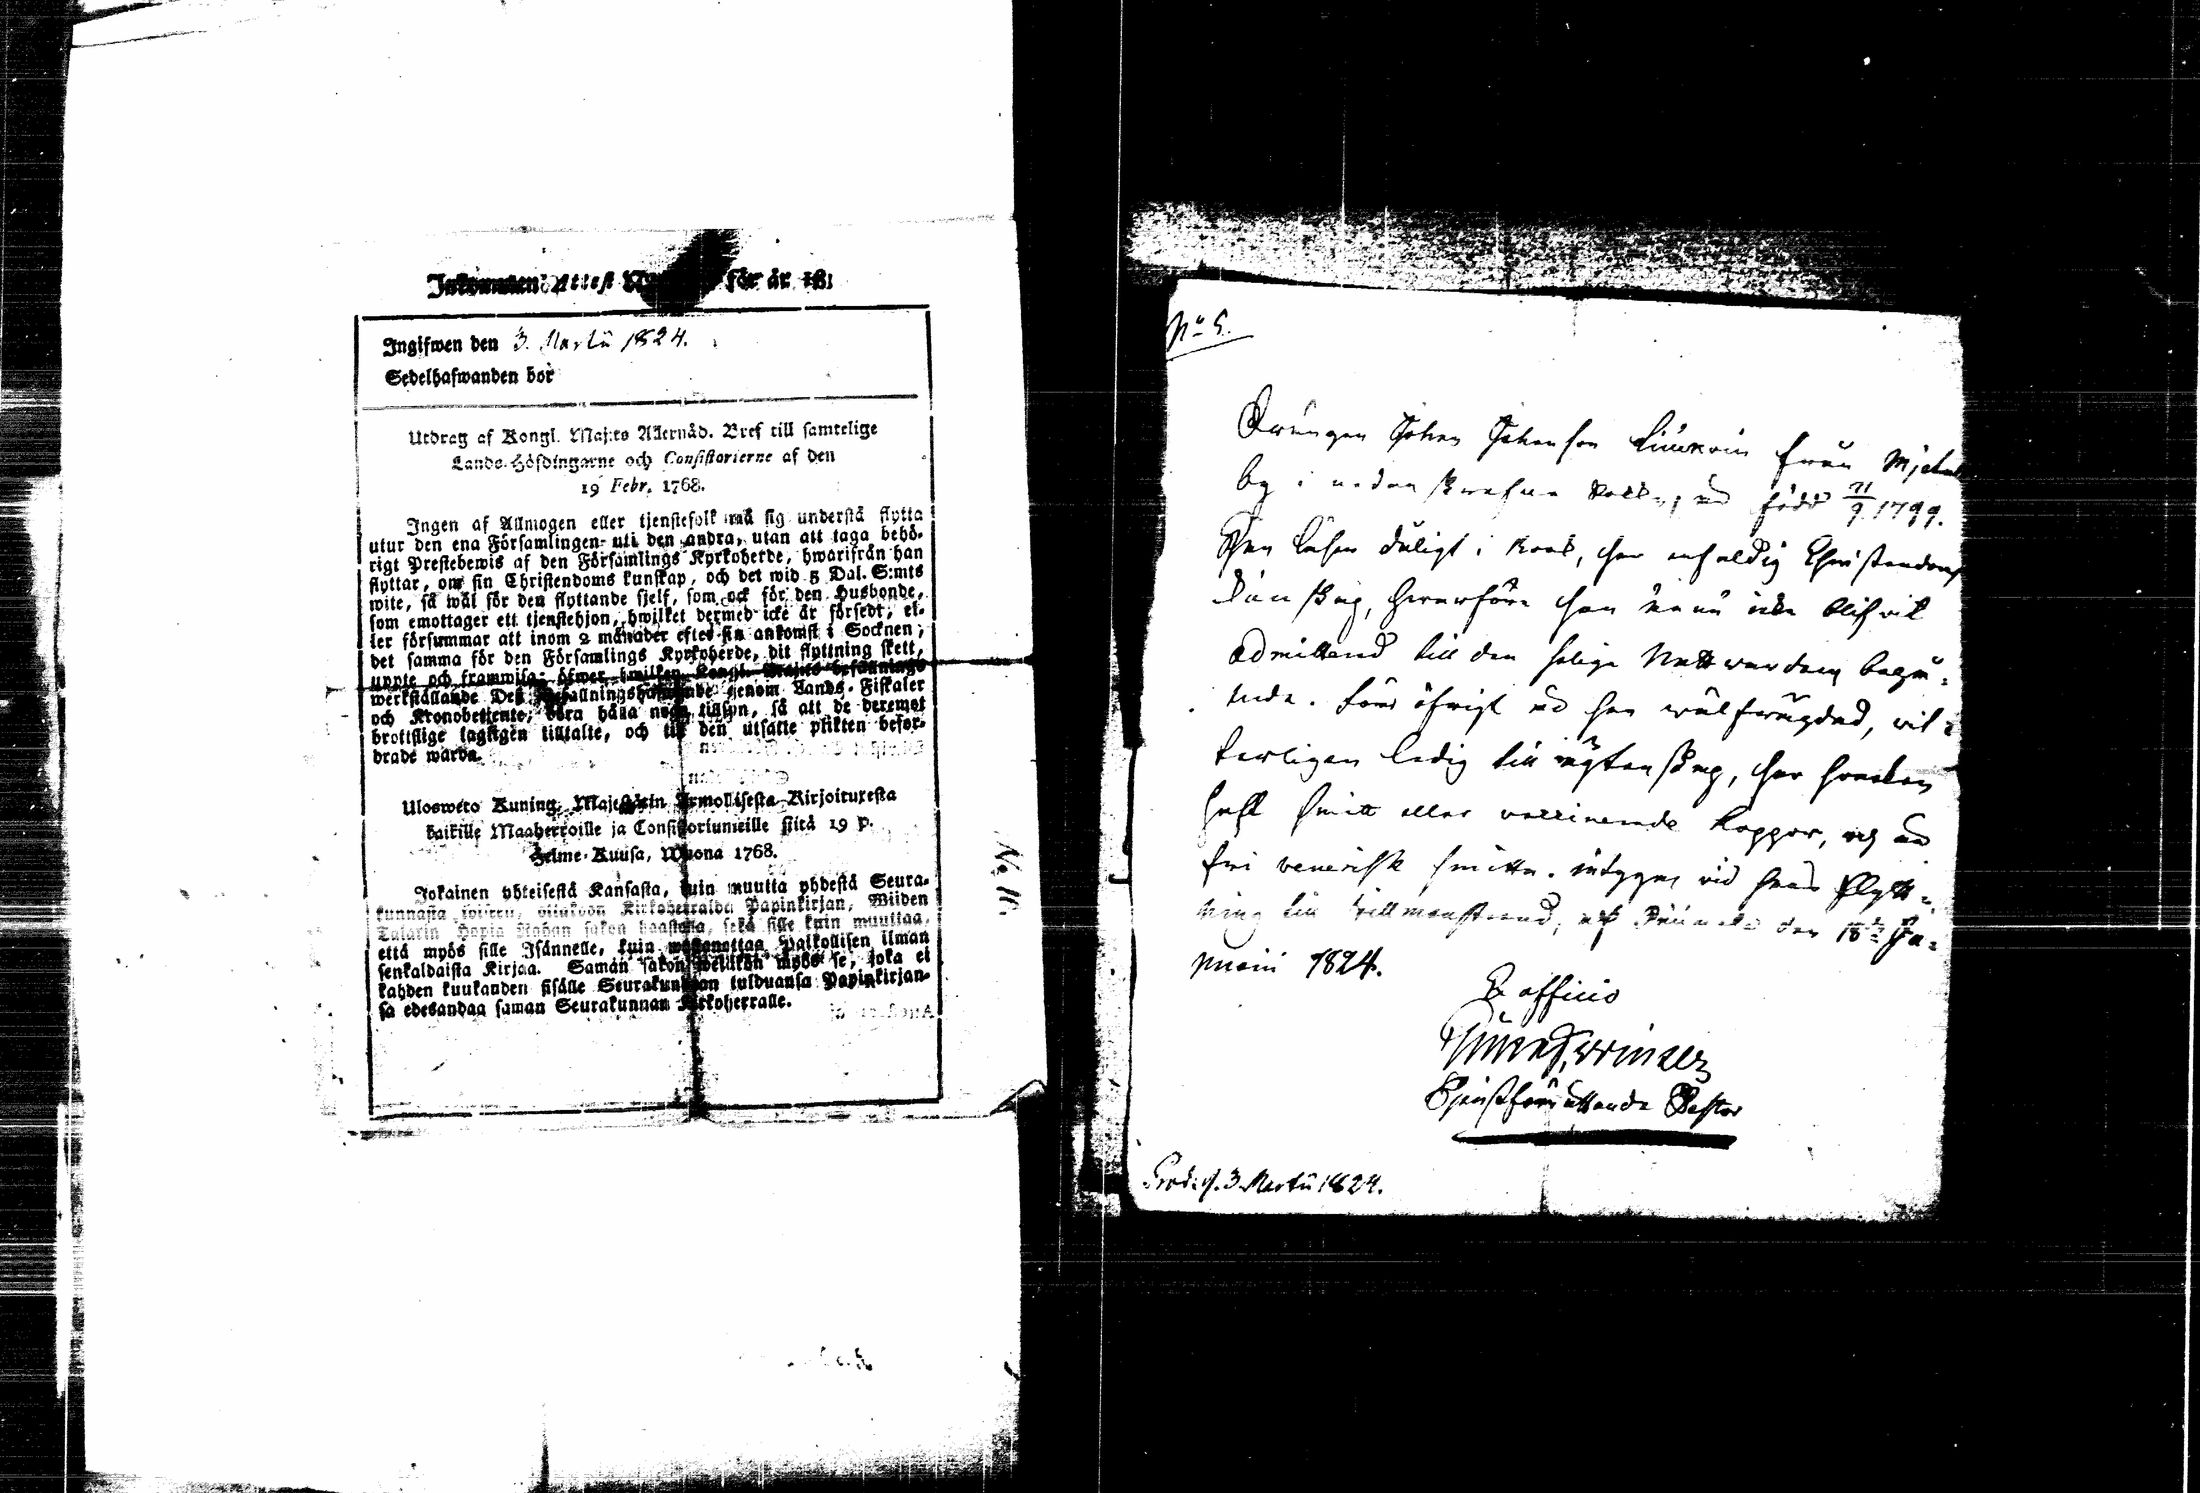 Inkommen Attest N för år 18
Ingifwen den 3. Martii 1824.
Sedelhafwanden bor
Utdrag af Kongl. Maj:ts Allernåd. Bref till samtelige
Lands-Höfdingarne och Consistorierne af den
19 Febr. 1768.
Ingen af Allmogen eller tjenstefolk må sig understå flytta
utur den ena Församlingen uti den andra, utan att taga behö-
rigt Prestebewis af den Församlings Kyrkoherde, hwarifrån han
flyttar, om sin Christendoms kunskap, och det wid 5 Dal. S:mts
wite, så wäl för den flyttande sjelf, som ock för den Husbonde,
som emottager ett tjenstehjon, hwilket dermed icke är försedt, el-
ler försummar att inom 2 månader efter sin ankomst i Socknen,
det samma för den Församlings Kyrkoherde, dit flyttning skett,
uppte och framwisa; öfwer hwilken Kongl. Maj:ts befallnings
werkställande Deß Befallningshafwande genom Lands-Fiskaler
och Kronobetjente, böra hålla noga tillsyn, så att de deremot
brottslige lagligen tilltalte, och till den utsatte plikten befor-
drade warda.
Ulosweto Kuning. Majestätin Armollisesta Kirjoituxesta
kaikille Maaherroille ja Consistoriumeille siitä 19 p.
Helme-Kuusa, Wuona 1768.
Jokainen yhteisestä Kansasta, kuin muutta yhdestä Seura-
kunnasta toiseen, Kirkoherralda Papinkirjan, Wiiden
Talarin Hopia Rahan sakon haastolla, sekä sille kuin muuttaa,
että myös sille Isännelle, kuin wastanottaa Palkollisen ilman
senkaldaista Kirjaa. Saman sakon wetäköön myös se, joka ei
kahden kuukauden sisälle Seurakunnaan tulduansa Papinkirjan-
sa edesandaa saman Seurakunnan Kirkoherralle.
No 11.
No 5.
Drängen Johan Johansson från
by i nedanskrefne är född 21/9 1799.
Han läser dåligt i bok, har enfaldig Christendoms
kunskap, hwarföre han ännu icke blifvit
admitterad till den helige Nattwardens begå-
ende. För öfrigt är han wälfrägdad, wit-
terligen ledig till ägtenskap, har
haft smitt eller vaccinerade koppor, och är
fri venerisk smitta. intygas vid hans flytt-
ning till den 18de Ja-
nuarii 1824.
Ex officio
Tjenstförrättande Pastor
Prod. d. 3 Martii 1824.